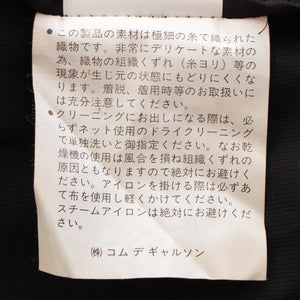 ●この製品の素材は極細の糸で織られた
織物です。非常にデリケートな素材の
為、織物の組織くずれ(糸ヨリ)等の
現象が生じ元の状態にもどりにくくな
ります。着脱、着用時等のお取扱いに
は充分注意してください。
●クリーニングにお出しになる際は、必
らずネット使用のドライクリーニング
で単独洗いと御指定ください。なお乾
燥機の使用は風合を損ね組織くずれの
原因ともなりますので絶対にお避けく
ださい。アイロンを掛ける際は必ずあ
て布を使用し軽くかけてください。
スチームアイロンは絶対にお避けくだ
さい。
㈱コムデギャルソン